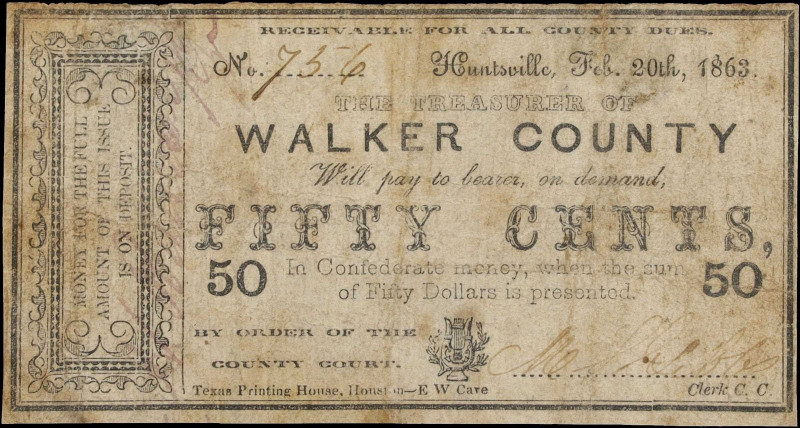 RECEIVABLE FOR ALL COUNTY DUES.
No. 756 Huntsville, Feb. 20th, 1863.
THE TREASURER OF
WALKER COUNTY
Will pay to bearer, on demand,
FIFTY CENTS,
50 In Confederate money, when the sum 50
of Fifty Dollars is presented.
BY ORDER OF THE
COUNTY COURT.
Texas Printing House, Houston—E W Cave Clerk C. C.
MONEY FOR THE FULL
AMOUNT OF THIS ISSUE
IS ON DEPOSIT.